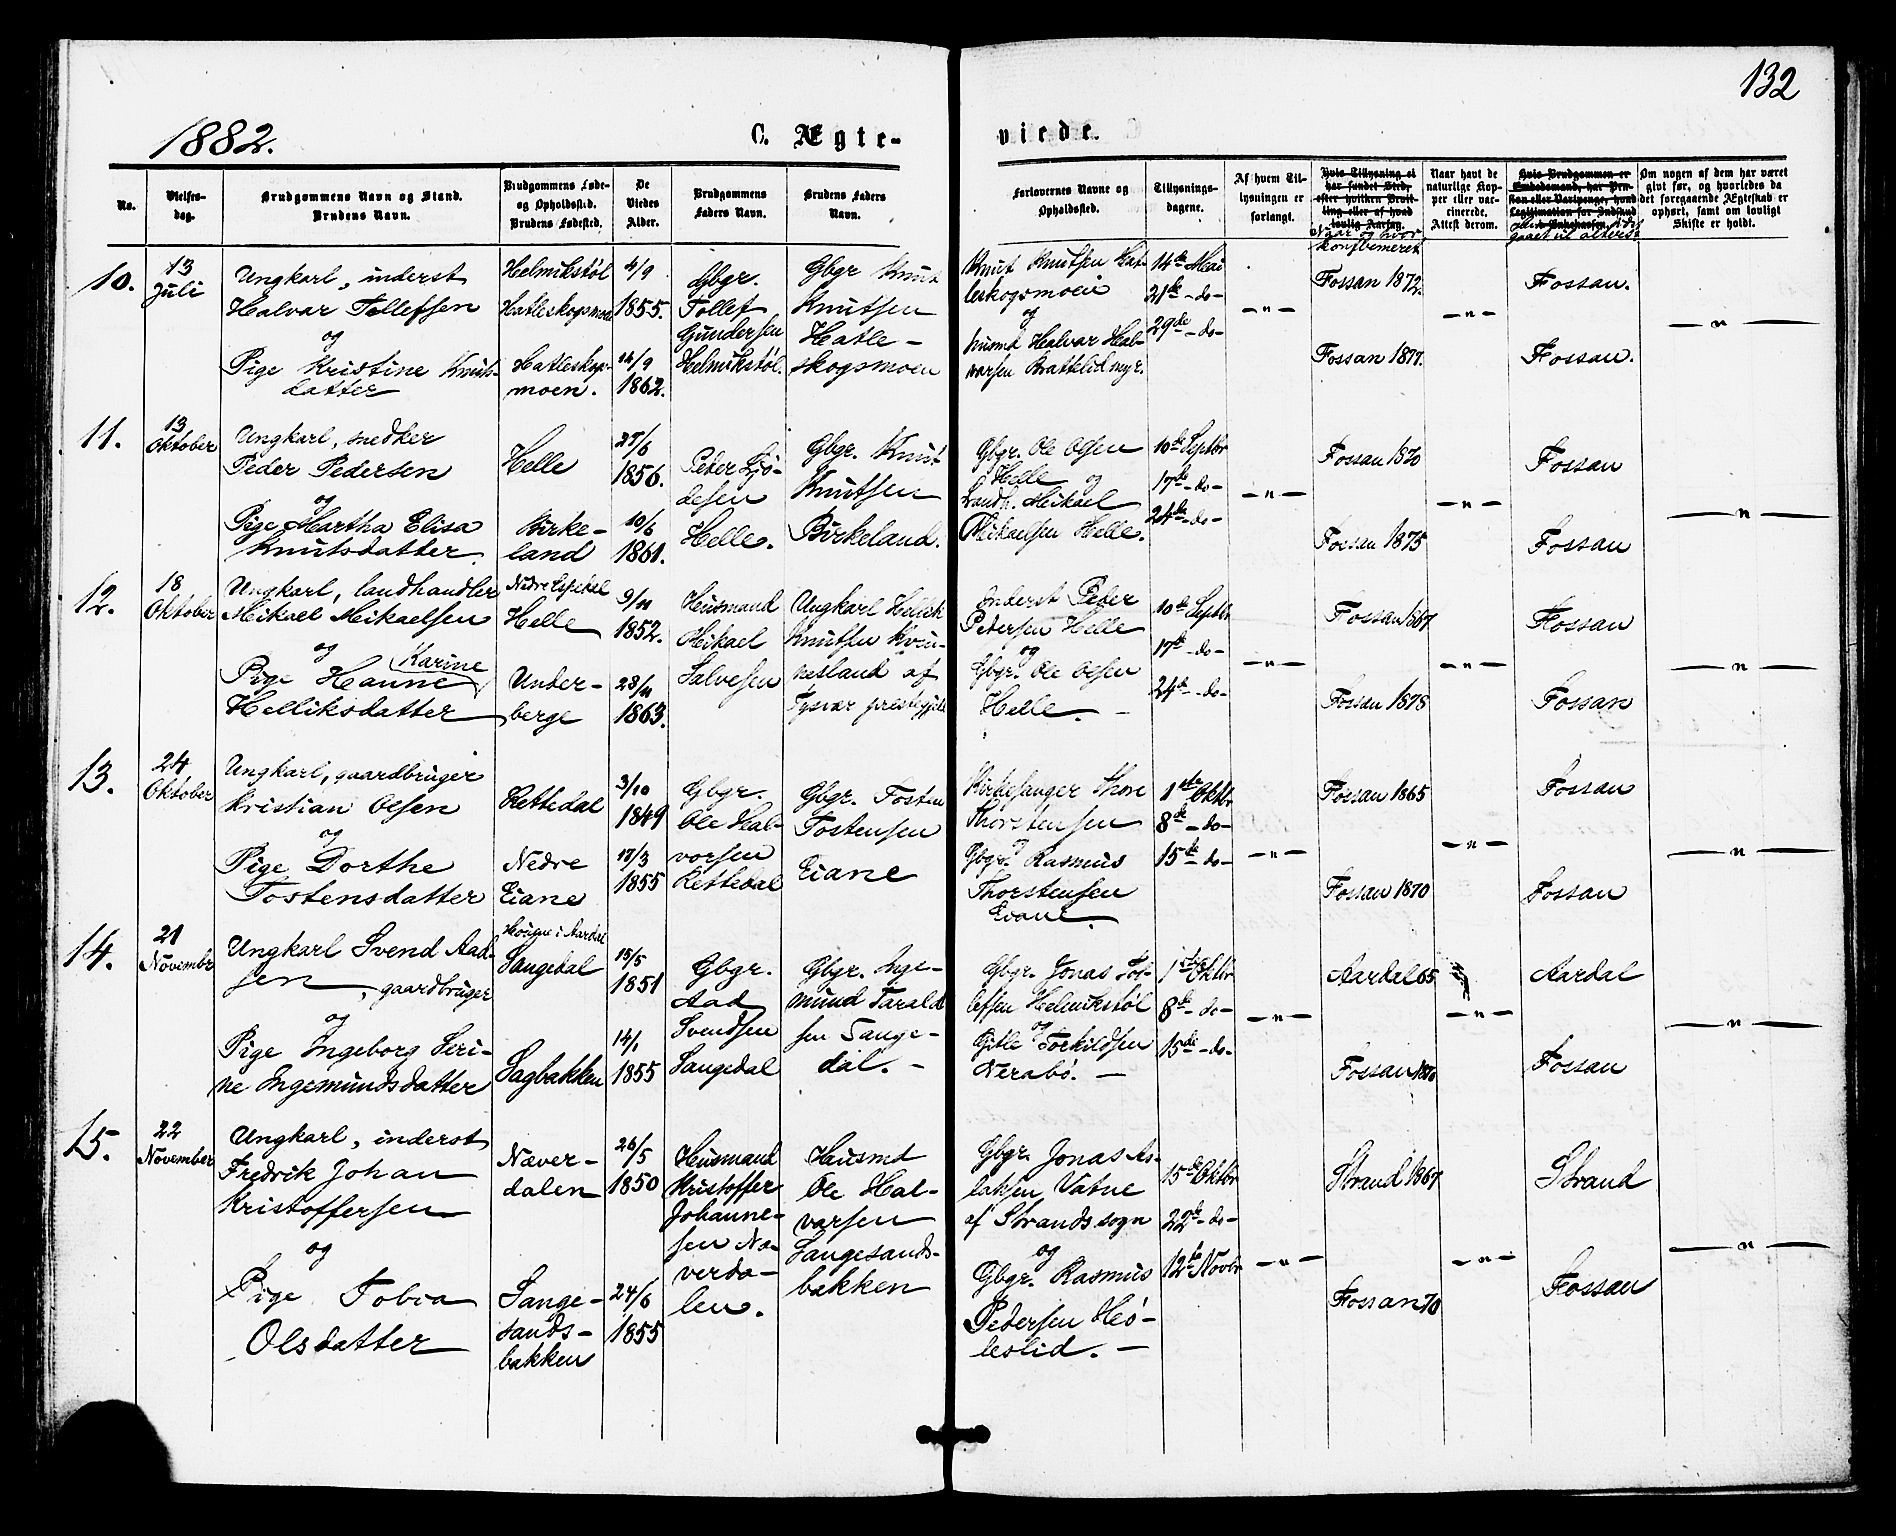 132
1882.
C. Ægte-
viede.
No.
Vielses-
dag.
Brudgommens Navn og Stand.
Brudens Navn.
Brudgommens Føde-
og Opholdssted.
Brudens Fødested.
De
Viedes
Alder.
Brudgommens
Faders Navn.
Brudens Faders
Navn.
Forlovernes Navne og
Opholdssted.
Tillysnings-
dagene.
Af hvem Til-
lysningen er
forlangt.
Hvis Tillysning ei
har fundet Sted,
efter hvilken Bevil-
ling eller af hvad
lovlig Aarsag.
Naar og hvor
konfirmeret
Naar havt de
naturlige Kop-
per eller vac-
cinerede.
Attest derom.
Hvis Brudgommen er
Embedsmand, har Pen-
sion eller Vartpenge, hvad
Legitimation for Indskud
i Enkekassen.
gaaet til alters
Om nogen af dem har været
givt før, og hvorledes da
det foregaaende Ægteskab er
ophørt, samt om lovligt
Skifte er holdt.
10.
13
Juli
Ungkarl, inderst
Halvar Tollefsen
og
Pige Kristine Knuts-
datter
Helmikstøl
Hatleskogsmoen
Hatleskogs-
moen.
4/9
1855.
14/9
1862.
Gbgr.
Tollef
Gundersen
Helmikstøl.
Gbgr Knut
Knutsen
Hatle-
skogsmoen
Knut Knutsen Hat-
leskogsmoen
og
husmd Halvar Hal-
varsen Brattelid myr.
14de Mai
21de -do-
29de -do-
-"-
Fossan 1872.
Fossan 1877.
-"-
Fossan.
Fossan.
-"-
11.
13
Oktober
Ungkarl, snedker
Peder Pedersen
og
Pige Martha Elisa
Knutsdatter
Helle
Birke-
land
25/6
1856.
10/6
1861.
Peder Ljø-
desen
Helle.
Gbgr. Knut
Knutsen
Birkeland.
Gbgr. Ole Olsen
Helle og
Landh. Mikael
Mikaelsen Helle.
10de Septbr
17de -do-
24de -do-
-"-
Fossan 1870
Fossan 1875
-"-
Fossan
Fossan
-"-
12.
18
Oktober
Ungkarl, landhandler
Mikael Mikaelsen
og
Karine
Pige Hanne
Helliksdatter
Nedre Espedal
Helle
Under-
berge
9/11
1852.
28/11
1863.
Husmand
Mikael
Salvesen
Ungkarl Hellik
Knutsen Kvin-
nesland af
Tysvær prestegjeld
Inderst Peder
Pedersen Helle
og
Gbgr. Ole Olsen
Helle. -
10de Septbr
17de -do-
24de -do-
-"-
Fossan 1867
Fossan 1878
-"-
Fossan
Fossan
-"-
13.
24
Oktober
Ungkarl, gaardbruger
Kristian Olsen
og
Pige Dorthe
Tostensdatter
Rettedal
Nedre
Eiane
3/10
1849
17/3
1855
Gbgr.
Ole Hal-
vorsen
Rettedal
Gbgr. Tosten
Tostensen
Eiane
Kirkesanger Thore
Thorstensen
og
Gbgr. Rasmus
Thorstensen
Eiane
1ste Oktbr
8de -do-
15de -do-
-"-
Fossan 1865
Fossan 1870
-"-
Fossan
Fossan
-"-
14.
21
Novembr
Ungkarl Svend Aad-
sen, gaardbruger
og
Pige Ingeborg Seri-
ne Ingemundsdatter
Hougne i Aardal
Sangedal
Sagbakken
15/5
1851
14/1
1855
Gbgr.
Aad
Svendsen
Sangedal
Gbgr. Inge-
mund Tarald-
sen Sange-
dal. -
Gbgr. Jonas Tol-
lefsen Helmikstøl
og
Gitle Torkildsen
Nerabø. -
1ste Oktbr
8de -do-
15de -do-
-"-
Aardal 65
Fossan 1870
-"-
Aardal
Fossan
-"-
15.
22
November
Ungkarl, inderst
Fredrik Johan
Kristoffersen
og
Pige Tobia
Olsdatter
Næver-
dalen
Sange-
sands-
bakken
26/5
1850
24/6
1855
Husmand
Kristoffer
Johanne-
sen Næ-
verda-
len.
Husmd
Ole Hal-
varsen
Sangesands-
bakken
Gbgr. Jonas As-
laksen Vatne
af Strands sogn
og
Gbgr. Rasmus
Pedersen Hø-
leslid. -
15de Oktbr
22de -do-
12te Novbr
-"-
Strand 1867
Fossan 70
-"-
Strand
Fossan
-"-